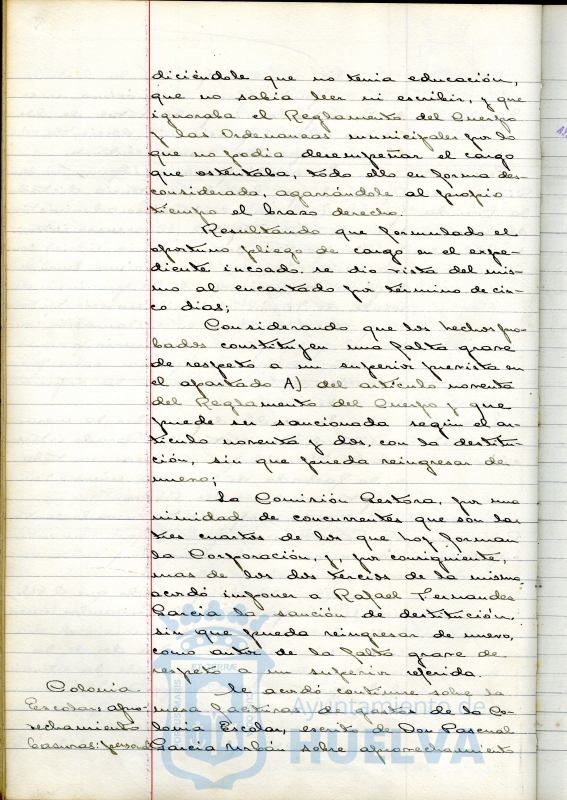 diciéndole que no tenia educación,
que no sabia leer ni escribir, y que
ignoraba el Reglamento del Cuerpo
y las Ordenanzas municipales por lo
que no podia desempeñar el cargo
que ostentaba, todo ello en forma des-
considerada, agarrándole al propio
tiempo el brazo derecho.
Resultando que formulado el
oportuno pliego de cargo en el expe-
diente incoado, se dio vista del mis-
mo al encartado por término de cin-
co dias;
Considerando que los hechos pro-
bados constituyen una falta grave
de respeto a un superior prevista en
el apartado A) del artículo noventa
del Reglamento del Cuerpo y que
puede ser sancionada según el ar-
tículo noventa y dos, con la destitu-
ción, sin que pueda reingresar de
nuevo;
La Comisión Gestora, por una
nimidad de concurrentes que son las
tres cuartos de los que hoy forman
la Corporación, y, por consiguiente,
mas de los dos tercios de la misma,
acordó imponer a Rafael Fernandez
Garcia la sanción de destitución,
sin que pueda reingresar de nuevo,
como autor de la falta grave de
respeto a un superior referida.
Colonia
Escolar: apro-
vechamiento
basuras: personal
Se acordó continue sobre la
mesa factura de gastos de la Co-
lonia Escolar, escrito de Don Pascual
Garcia Urbán sobre aprovechamiento
Ayuntamiento de
HUELVA